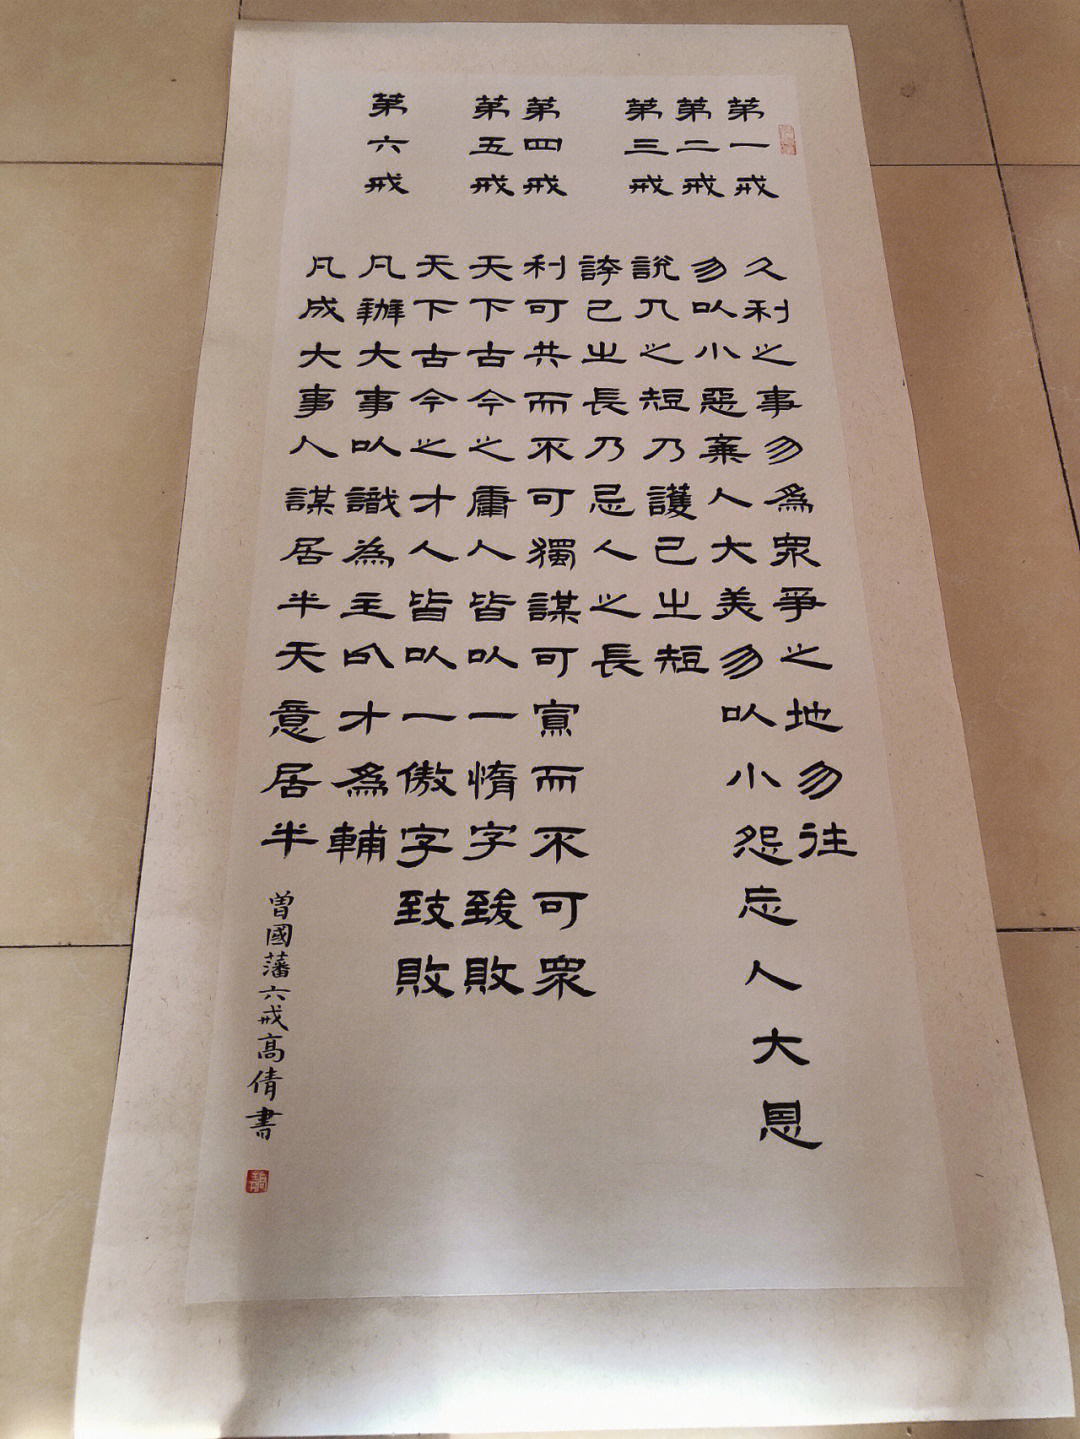 第一戒 久利之事勿爲衆爭之地勿往
第二戒 勿以小惡棄人大美勿以小怨忘人大恩
第三戒 說人之短乃護己之短
誇己之長乃忌人之長
第四戒 利可共而不可獨謀可寡而不可衆
第五戒 天下古今之庸人皆以一惰字致敗
天下古今之才人皆以一傲字致敗
第六戒 凡辦大事以識為主以才爲輔
凡成大事人謀居半天意居半
曾國藩六戒高倩書